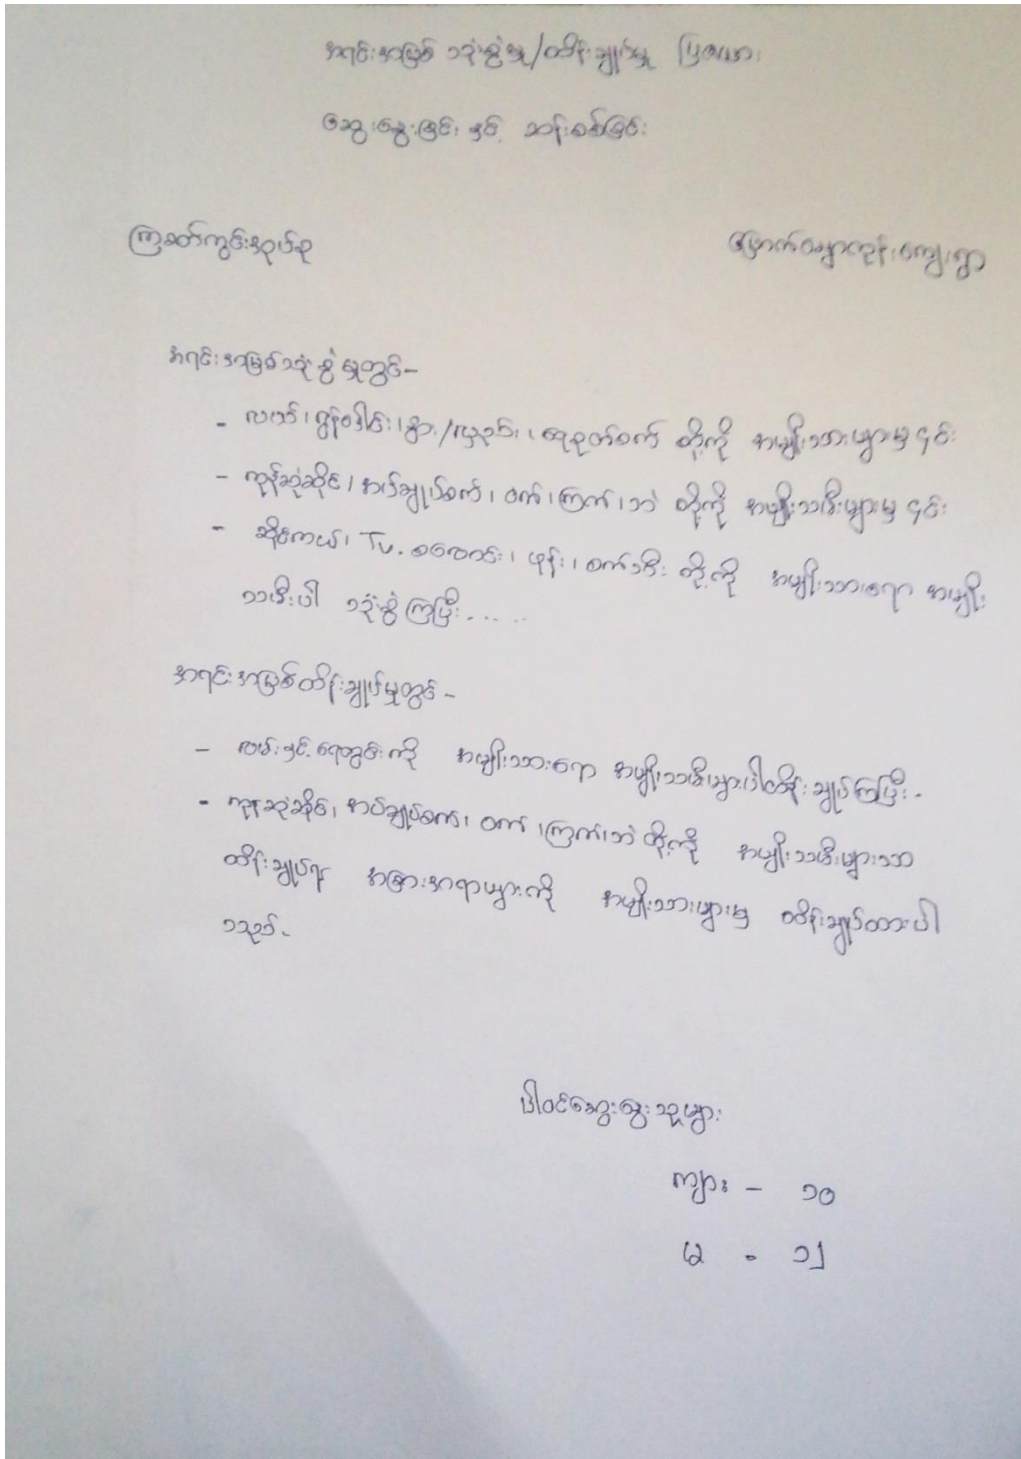 အရင်းအမြစ် သုံးစွဲမှု/ထိန်းချုပ်မှု ပြဇယား
ဆွေးနွေးခြင်း နှင့် ဆန်းစစ်ခြင်း
ကြခတ်ကွင်းအုပ်စု မြောက်ချောကုန်းကျေးရွာ
အရင်းအမြစ်သုံးစွဲမှုတွင်-
- လယ်၊ ထွန်စပါး၊ နွား/လှည်း၊ ရေစုတ်စက် တို့ကို အမျိုးသားများမှ ၄င်း
- ကုန်ဆုံဆိုင်၊ အပ်ချုပ်စက်၊ ဝက်၊ ကြက်၊ ဘဲ တို့ကို အမျိုးသမီးများမှ ၄င်း
- ဆိုင်ကယ်၊ Tv. စလောင်း၊ ဖုန်း၊ စက်ဘီး တို့ကို အမျိုးသားရော အမျိုး
သမီးပါ သုံးစွဲကြပြီး.....
အရင်းအမြစ်ထိန်းချုပ်မှုတွင် -
- လမ်းနှင့် ရေတွင်းကို အမျိုးသားရော အမျိုးသမီးများပါထိန်းချုပ်ကြပြီး.
- ကုန်ဆုံဆိုင်၊ အပ်ချုပ်စက်၊ ဝက်၊ ကြက်၊ ဘဲ တို့ကို အမျိုးသမီးများသာ
ထိန်းချုပ်၍ အခြားအရာများကို အမျိုးသားများမှ ထိန်းချုပ်ထားပါ
သည်.
ပါဝင်ဆွေးနွေးသူများ
ကျား - ၁၀
မ - ၁၂